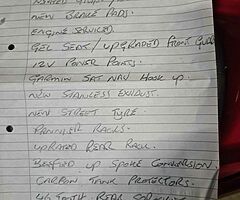 NEW BRAKE PADS.
ENGINE SERVICED.
GEL SEATS / UPGRADED FRONT
12V POWER POINTS.
GARMIN SAT NAV HOOK UP.
NEW STAINLESS EXHAUST.
NEW STREET TYRE
PANNIER RACKS.
UPRATED REAR RACK.
BEEFED UP SPOKE CONVERSION
CARBON TANK PROTECTORS.
46 TOOTH REAR